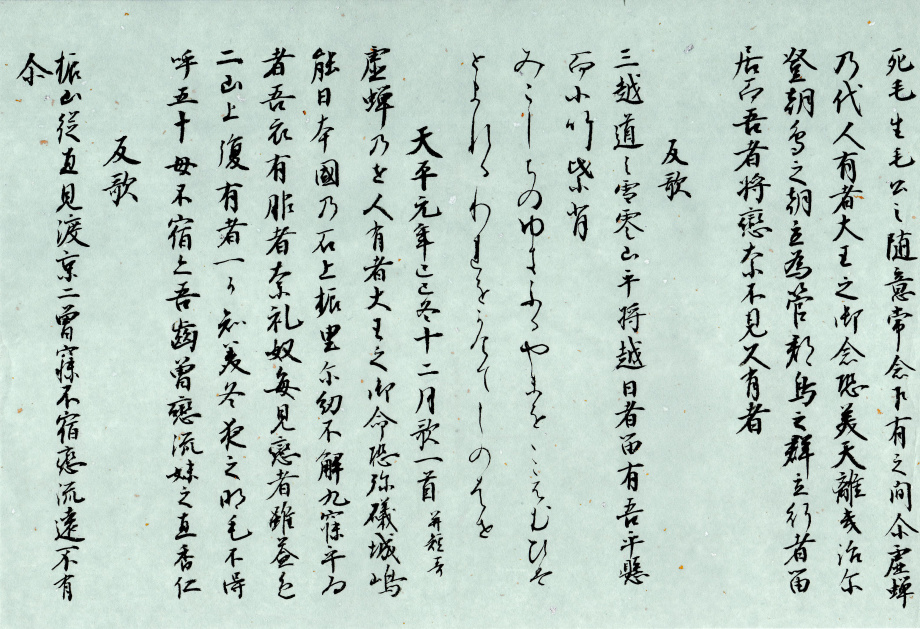 死毛生毛公之随意常念乍有之間尒虚蝉
乃代人有者大王之御念恐美天離夷治尓
登朝鳥之朝立為管群鳥之群立行者留
居而吾者将戀奈不見久有者
反歌
三越道之雪零山乎将越日者留有吾乎懸
而小竹背
みこしちのゆきふるやまをこえむひは
とまれるわれをかけてしのはせ
天平元年己巳冬十二月歌一首 并短哥
虚蝉乃世人有者大王之御命恐弥礒城嶋
能日本國乃石上振里尓紉不解丸寐乎為
者吾衣有服者奈礼奴毎見戀者雖益色
二山上復有者一可知美冬夜之明毛不得
呼五十母不宿二吾齒曽戀流妹之直香仁
反歌
振山従直見渡京二曽寐不宿戀流遠不有
尒